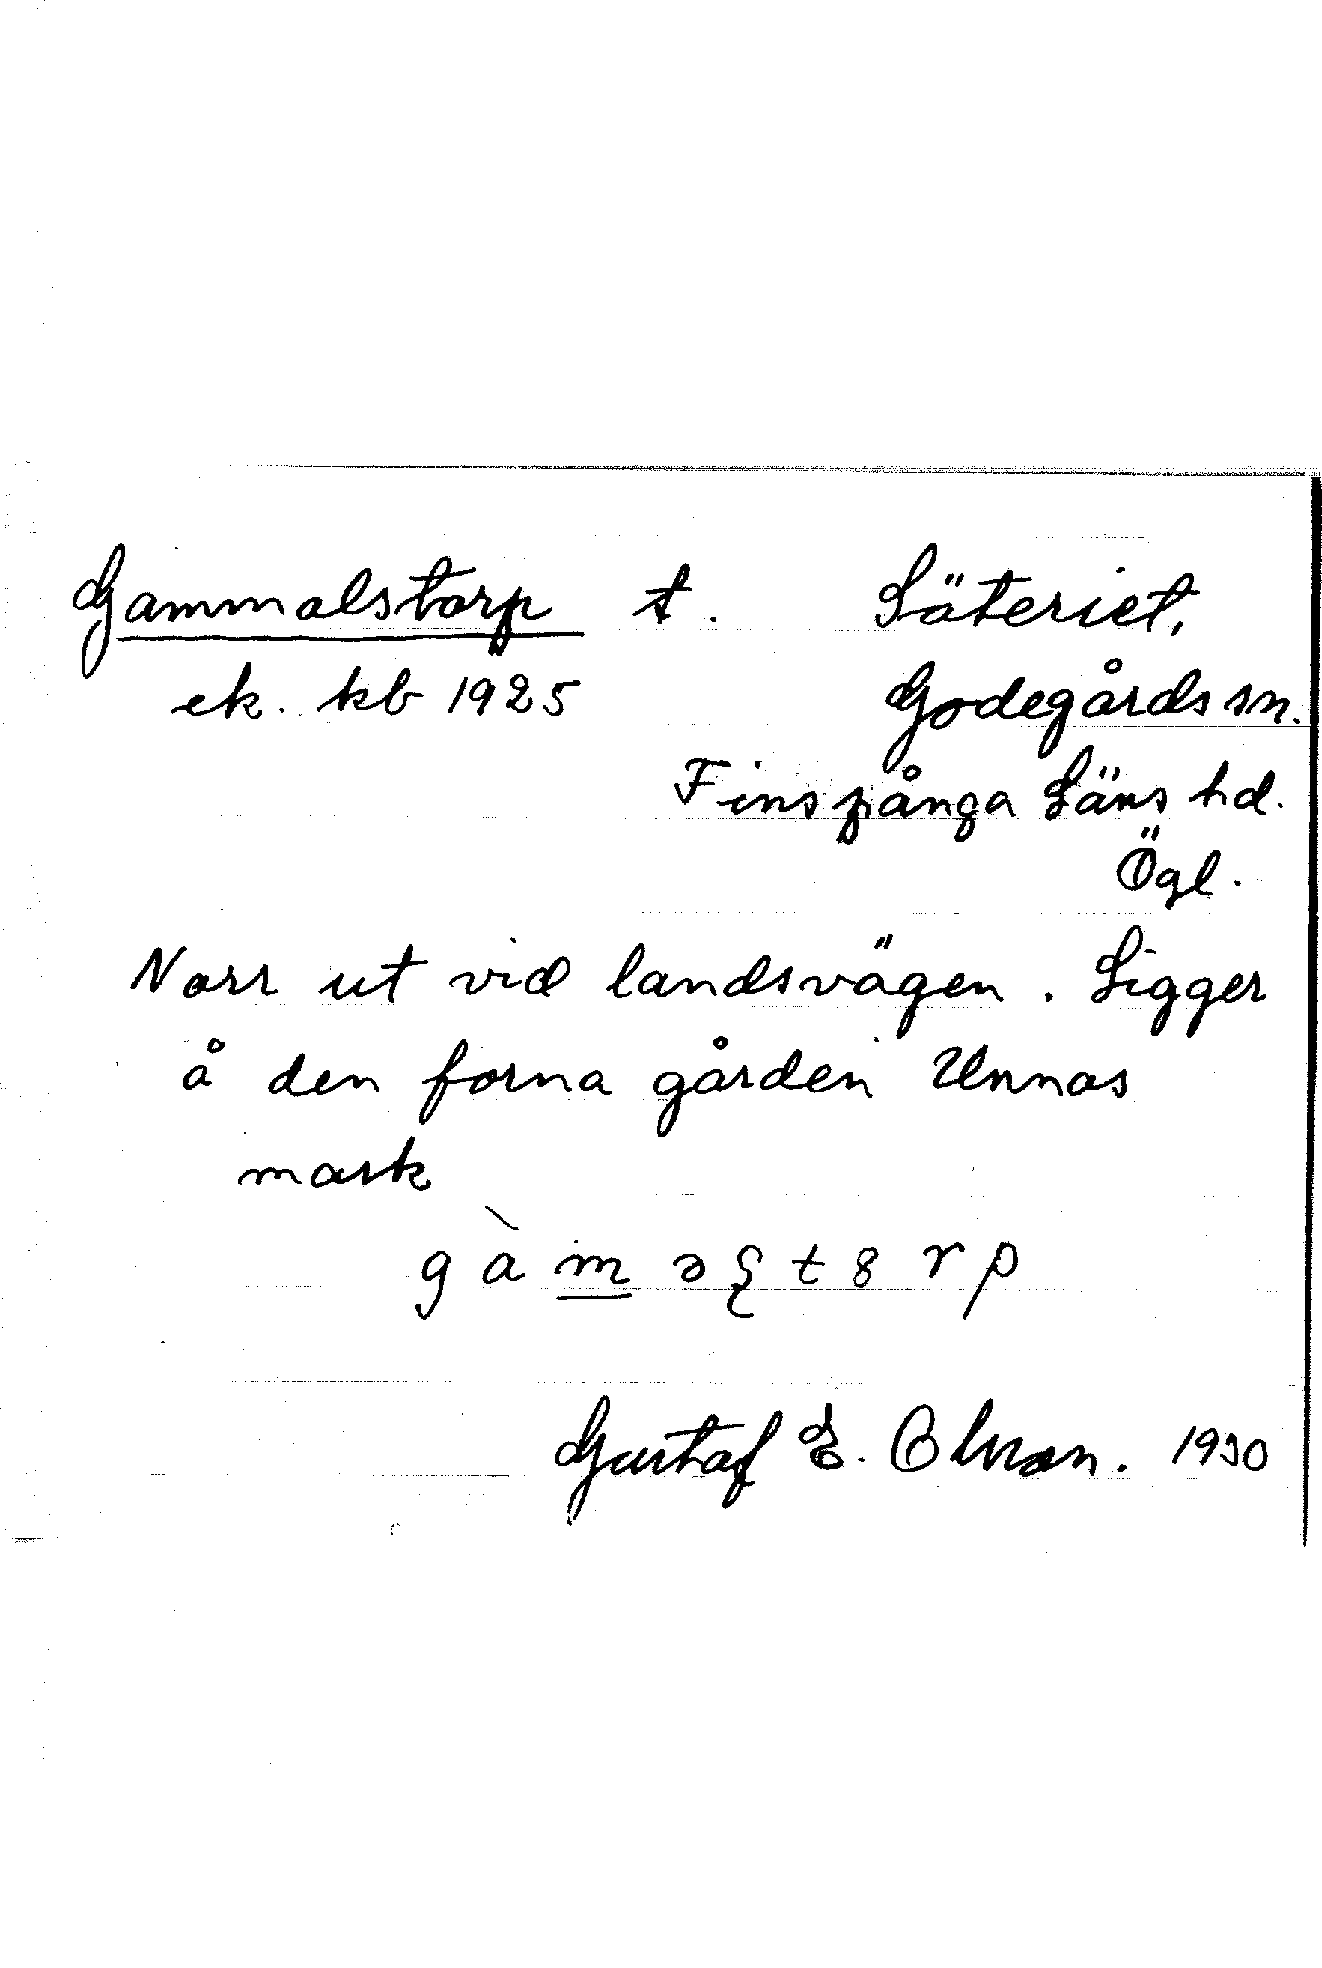 Gammalstorp t. Säteriet,
ek. kb 1925 Godegårds sn.
Finspånga Läns hd.
Ögl.
Norr ut vid landsvägen. Ligger
å den forna gården Unnas
mark
g à m ə ʂ t 8 r p
Gustaf E. Olsson. 1930